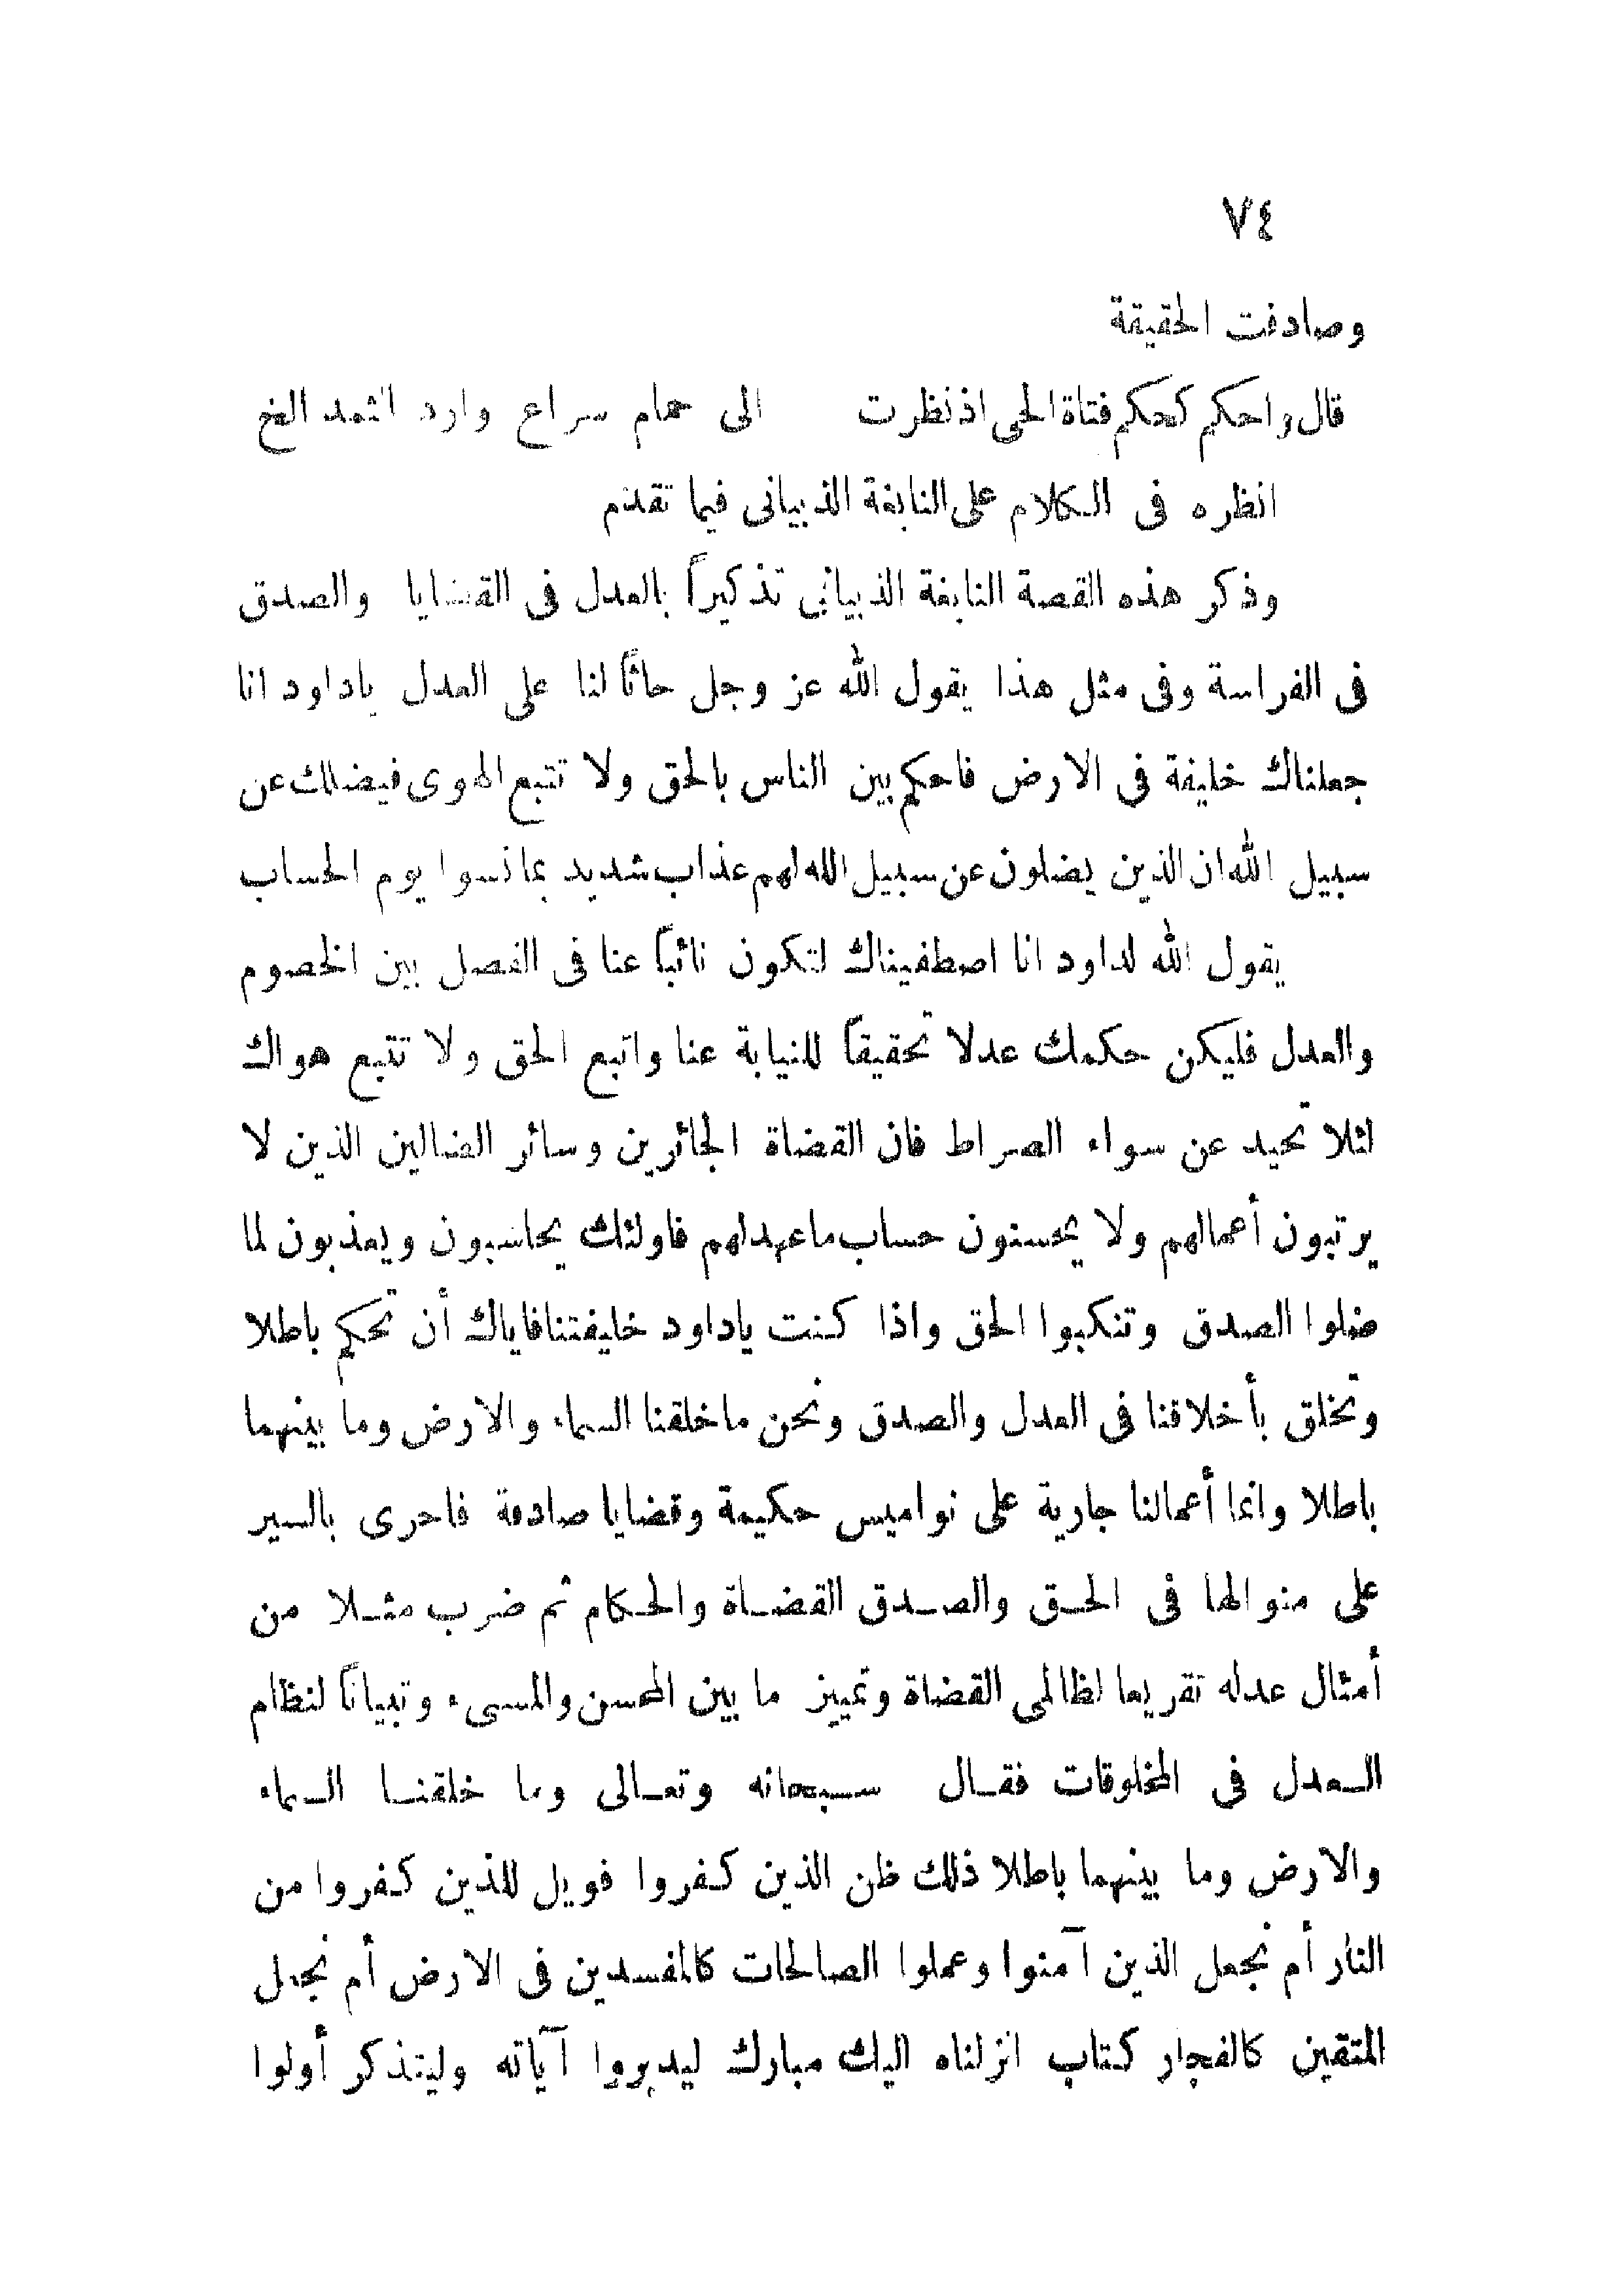 ٧٤
وصادفت الحقيقة
قال واحكم كحكم فتاة الحى اذ نظرت الى حمام سراع وارد الثمد الخ
انظره فى الكلام على النابغة الذبيانى فيما تقدم
وذكر هذه القصة النابغة الذبيانى تذكيراً بالعدل فى القضايا والصدق
فى الفراسة وفى مثل هذا يقول الله عز وجل حاثاً لنا على العدل ياداود انا
جعلناك خليفة فى الارض فاحكم بين الناس بالحق ولا تتبع الهوى فيضلك عن
سبيل الله ان الذين يضلون عن سبيل الله لهم عذاب شديد بما نسوا يوم الحساب
يقول الله لداود انا اصطفيناك لتكون نائباً عنا فى الفصل بين الخصوم
والعدل فليكن حكمك عدلا تحقيقاً للنيابة عنا واتبع الحق ولا تتبع هواك
لئلا تحيد عن سواء الصراط فان القضاة الجائرين وسائر الضالين الذين لا
يرتبون أعمالهم ولا يحسنون حساب ماعهد لهم فاولئك يحاسبون ويعذبون لما
ضلوا الصدق وتنكبوا الحق واذا كنت ياداود خليفتنا فاياك أن تحكم باطلا
وتخلق بأخلاقنا فى العدل والصدق ونحن ماخلقنا السماء والارض وما بينهما
باطلا وانما أعمالنا جارية على نواميس حكيمة وقضايا صادقة فاحرى بالسير
على منوالها فى الحق والصدق القضاة والحكام ثم ضرب مثلا من
أمثال عدله تقريعا لظالمى القضاة وتمييز ما بين المحسن والمسىء وتبياناً لنظام
العدل فى المخلوقات فقال سبحانه وتعالى وما خلقنا السماء
والارض وما بينهما باطلا ذلك ظن الذين كفروا فويل للذين كفروا من
النار أم نجعل الذين آمنوا وعملوا الصالحات كالمفسدين فى الارض أم نجعل
المتقين كالفجار كتاب انزلناه اليك مبارك ليدبروا آياته وليتذكر أولوا